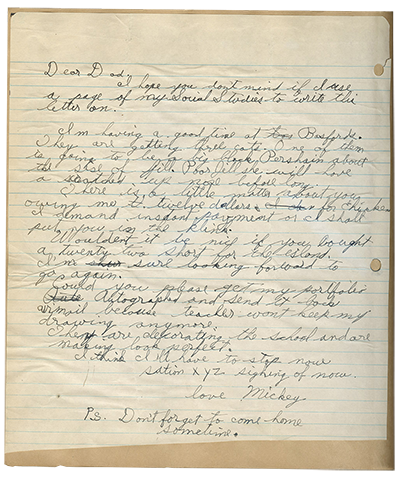 Dear Dad,
I hope you don't mind if I use
a page of my Social Studies to write this
letter on.
I'm having a good time at
They are getting three cats. One of them
is going to be a big black, Pershain about
the size of Jill. Poor Jill she will have
a scratched up nose before long
There is a little matter about you
owing me twelve dollars. for
I demand instant payment or I shall
put you in the klink.
Wouldent it be nice if you bought
a twenty two short for the island.
I'm sure looking forward to
go again.
Could you please get my portfolio
Autographed and send it back
airmail because teacher wont keep my
drawing anymore.
They are decorating the school and are
making look perfect.
I think I'll have to stop now
sation XYZ signing of now.
love Mickey
P.S. Don't forget to come home
sometime.